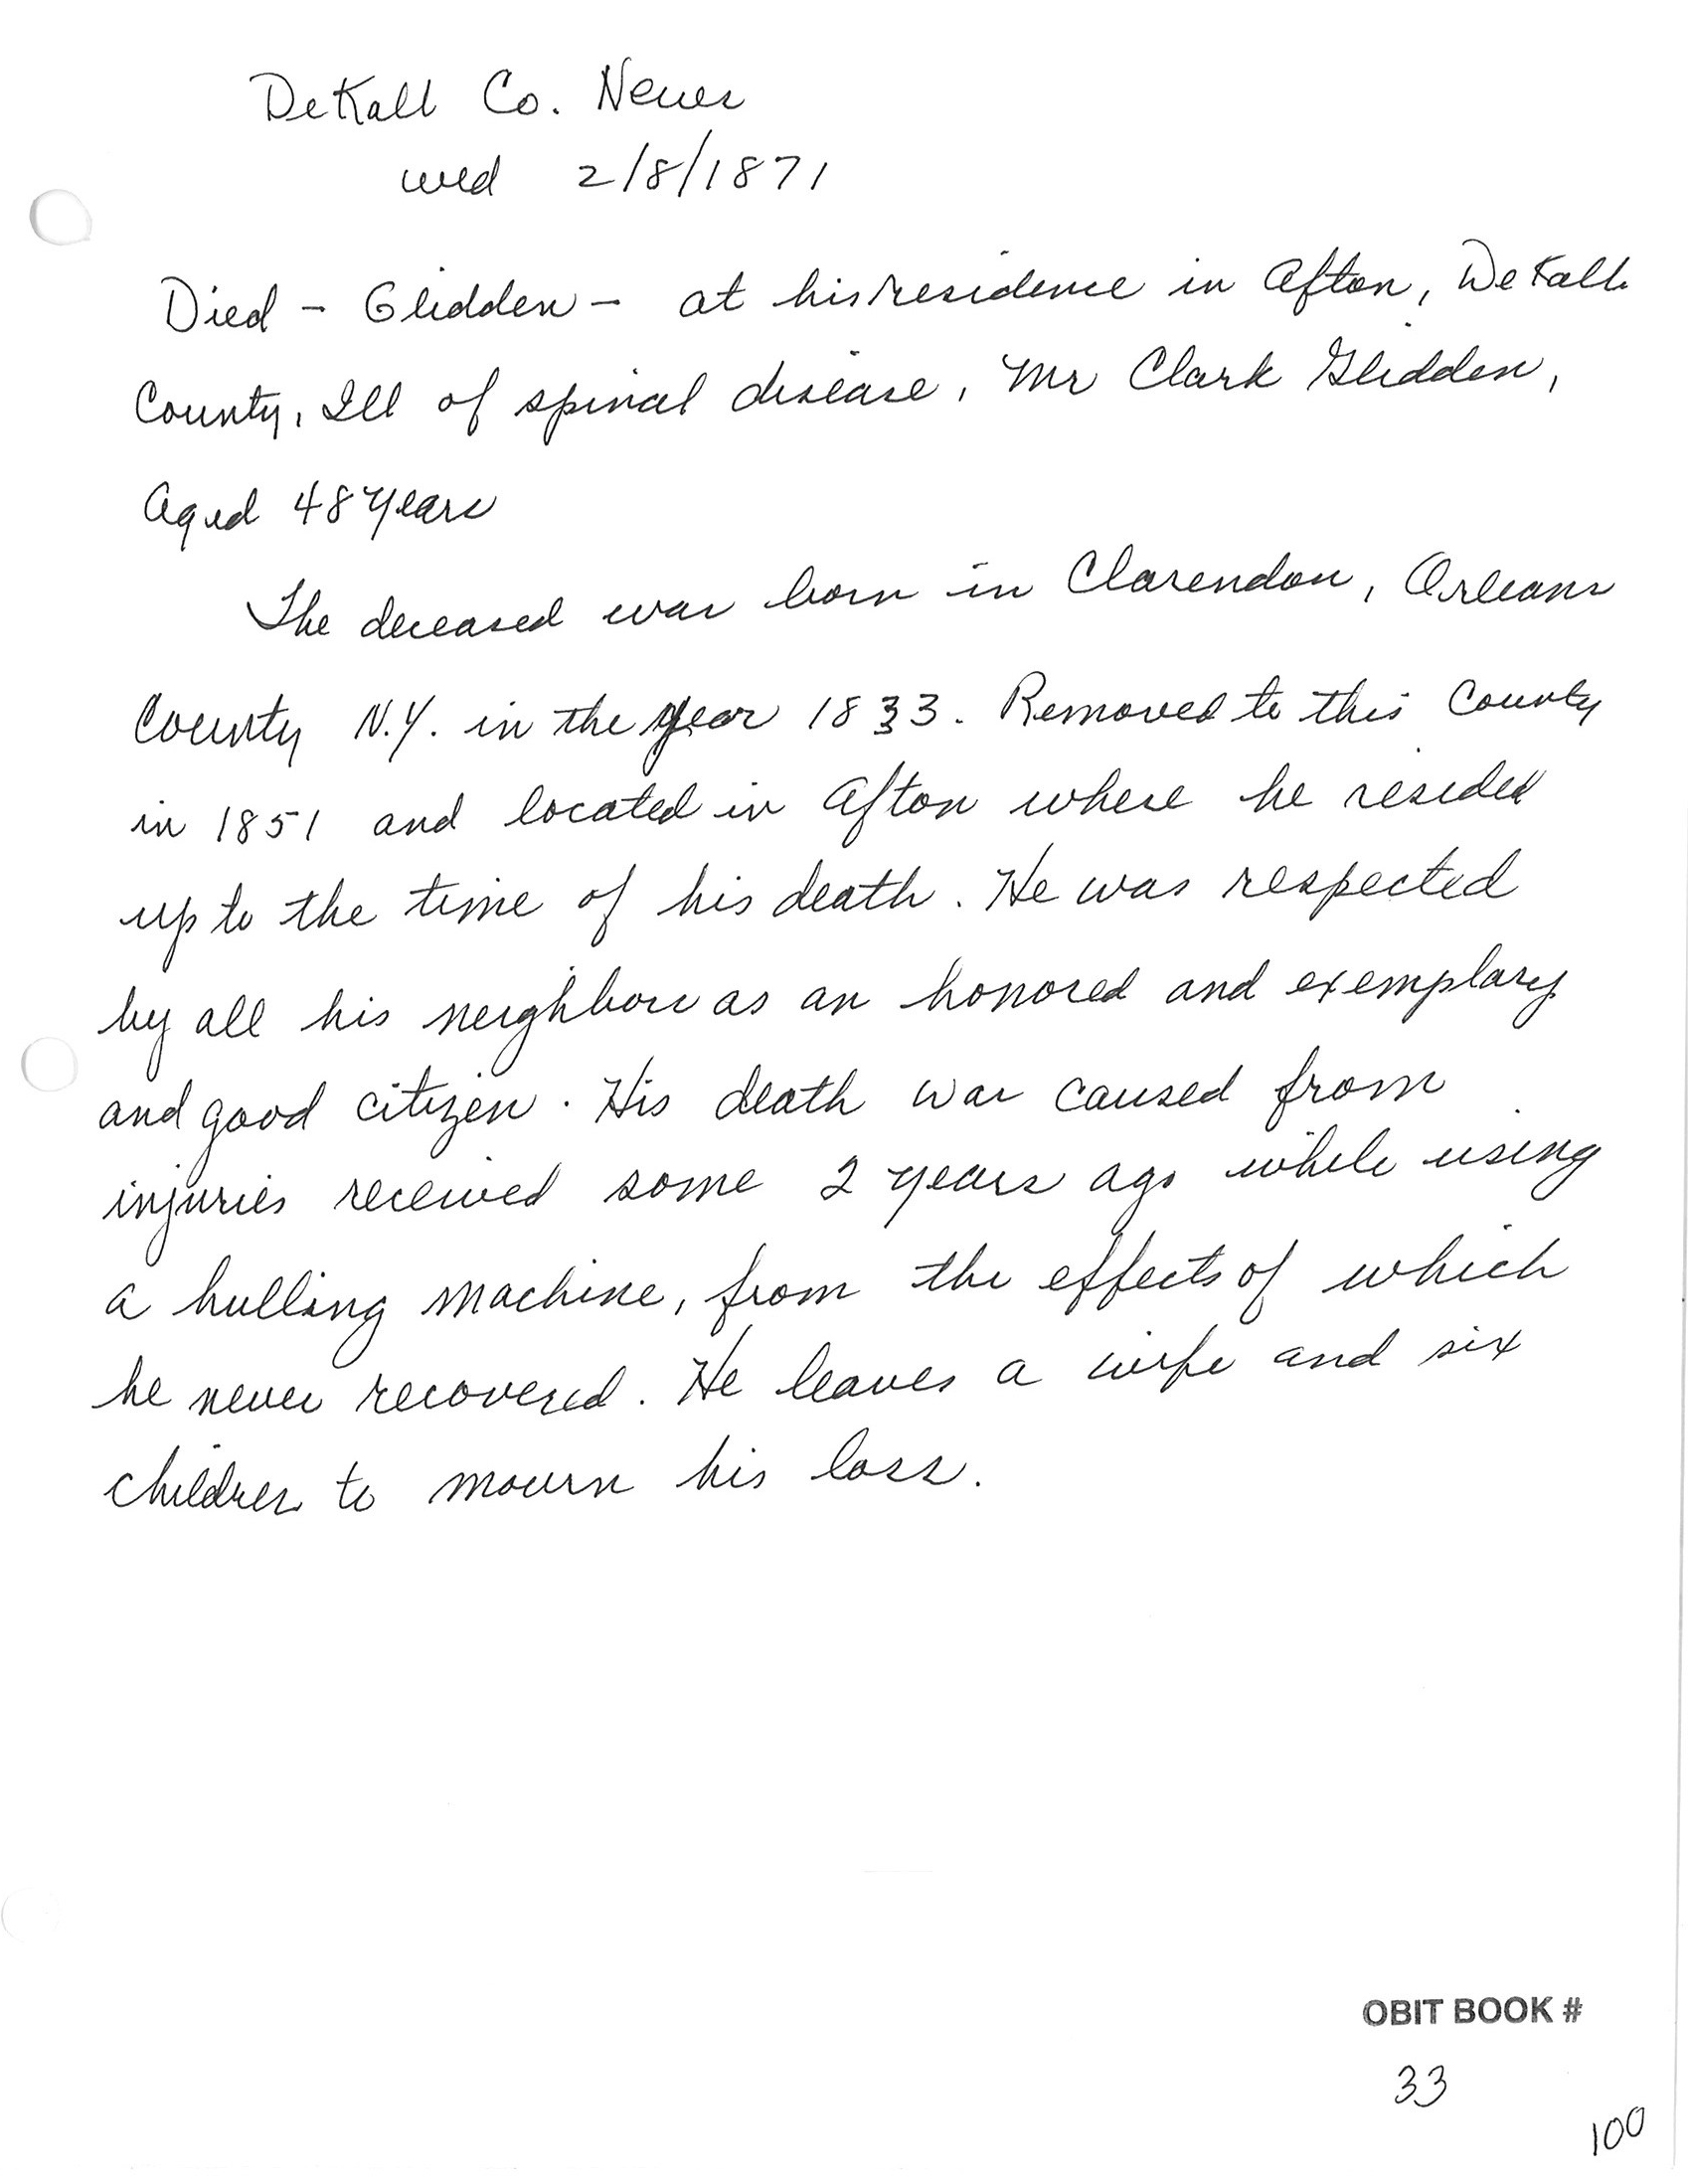 DeKalb Co. News
wed 2/8/1871
Died - Glidden - at his residence in Afton, DeKalb
County, Ill of spinal disease, Mr Clark Glidden,
Aged 48 years
The deceased was born in Clarendon, Orleans
County N.Y. in the year 1833. Removed to this County
in 1851 and located in Afton where he resided
up to the time of his death. He was respected
by all his neighbors as an honored and exemplary
and good citizen. His death was caused from
injuries received some 2 years ago while using
a hulling machine, from the effects of which
he never recovered. He leaves a wife and six
children to mourn his loss.
OBIT BOOK #
33
100